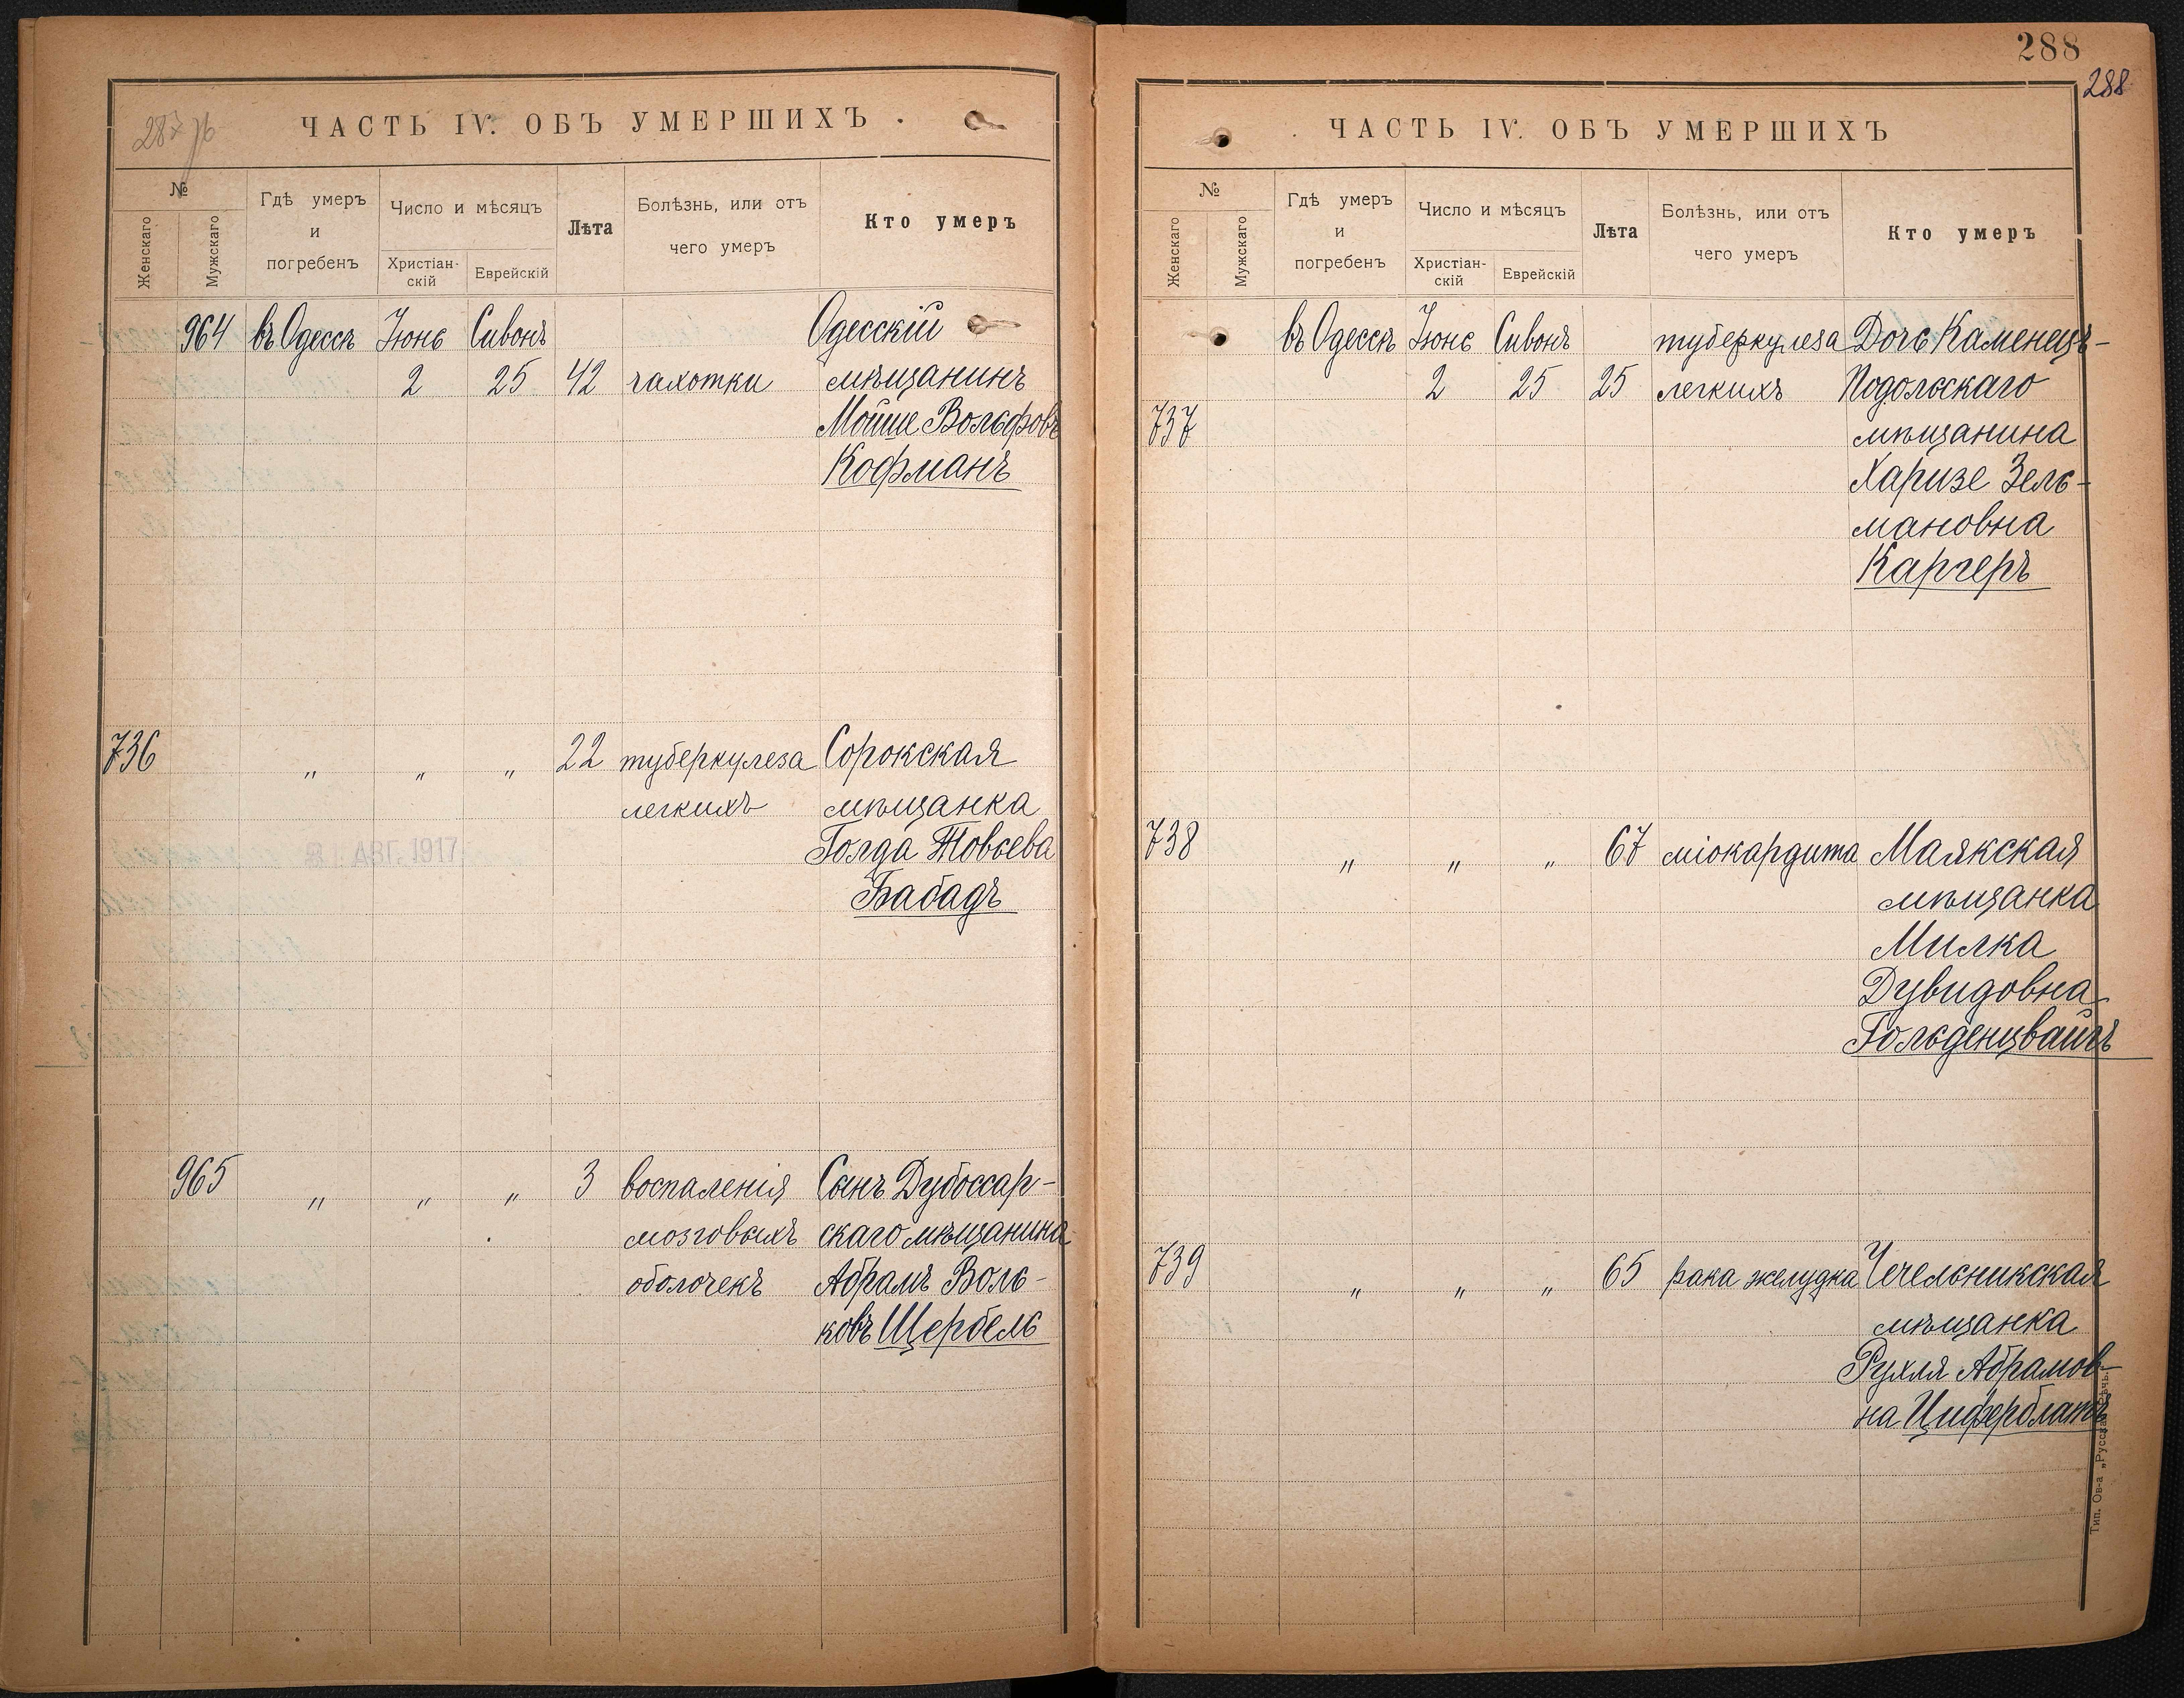 287 об
ЧАСТЬ IV. ОБЪ УМЕРШИХЪ.
№
Женскаго
Мужскаго
Гдѣ умеръ
и
погребенъ
Число и мѣсяцъ
Христіан-
скій
Еврейскій
Лѣта
Болѣзнь, или отъ
чего умеръ
Кто умеръ
964 въ Одессѣ Іюнь Сивонъ Одесскій
2 25 42 чахотки мѣщанинъ
Мойше Вольфовъ
Кофманъ
736 " " " 22 туберкулеза Сорокская
легкихъ мѣщанка
Голда Товьева
АВГ. 1917
Бабадъ
965 " " " 3 воспаленія Сынъ Дубоссар-
мозговыхъ скаго мѣщанина
оболочекъ Абрамъ Воль-
ковъ Щербель
288
288
ЧАСТЬ IV. ОБЪ УМЕРШИХЪ
№
Женскаго
Мужскаго
Гдѣ умеръ
и
погребенъ
Число и мѣсяцъ
Христіан-
скій
Еврейскій
Лѣта
Болѣзнь, или отъ
чего умеръ
Кто умеръ
въ Одессѣ Іюнь Сивонъ туберкулеза Дочь Каменецъ-
2 25 25 легкихъ Подольскаго
737 мѣщанина
Харизе Зель-
мановна
Каргеръ
738 " " " 67 міокардита Маякская
мѣщанка
Милка
Дувидовна
Гольденцвайгъ
739 " " " 65 рака желудка Чечельникская
мѣщанка
Рухля Абрамов-
на Циферблатъ
Тип. Ов-а „Русская Рѣчь."